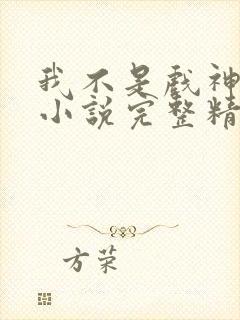 我不是戏神
小说完整精
方荣